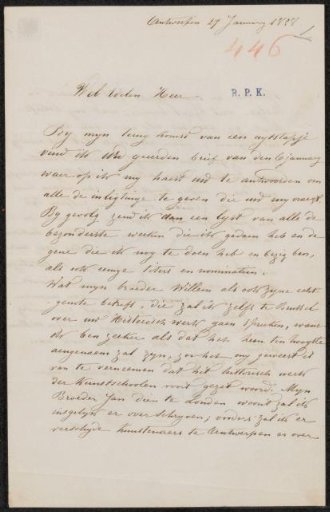 Antwerpen 27 January 1857
1
446
Wel Edelen Heer
R. P. K.
By myn terug komst van een uytstapje
vind ik UE geeerden brief van den 6 January
waer op ik my haest UE te antwoorden en
alle de inligtinge te geven die UE my vraegt.
By gevolg zend ik dan een lyst van alle de
bezonderste werken die ik gedaen heb en de
gene die ik nog te doen heb en bezig ben,
als ook eenige titers en nominatien.
Wat myn broeder Willem als ook zyne echt
genote betreft, die zal ik zelfs te Brussel
over UE Historisch werk gaen spreken, want
ik ben zeker als dat het hem ten hoogste
aengenaem zal zyn, zoo het my geweest is
van te vernemen dat het historisch werk
der Kunstschoolen voort gezet word. Myn
Broeder Jan die te Londen woont zal ik
insgelyks er over schryven; verders zal ik er
verscheyde kunstenaers te Antwerpen er over